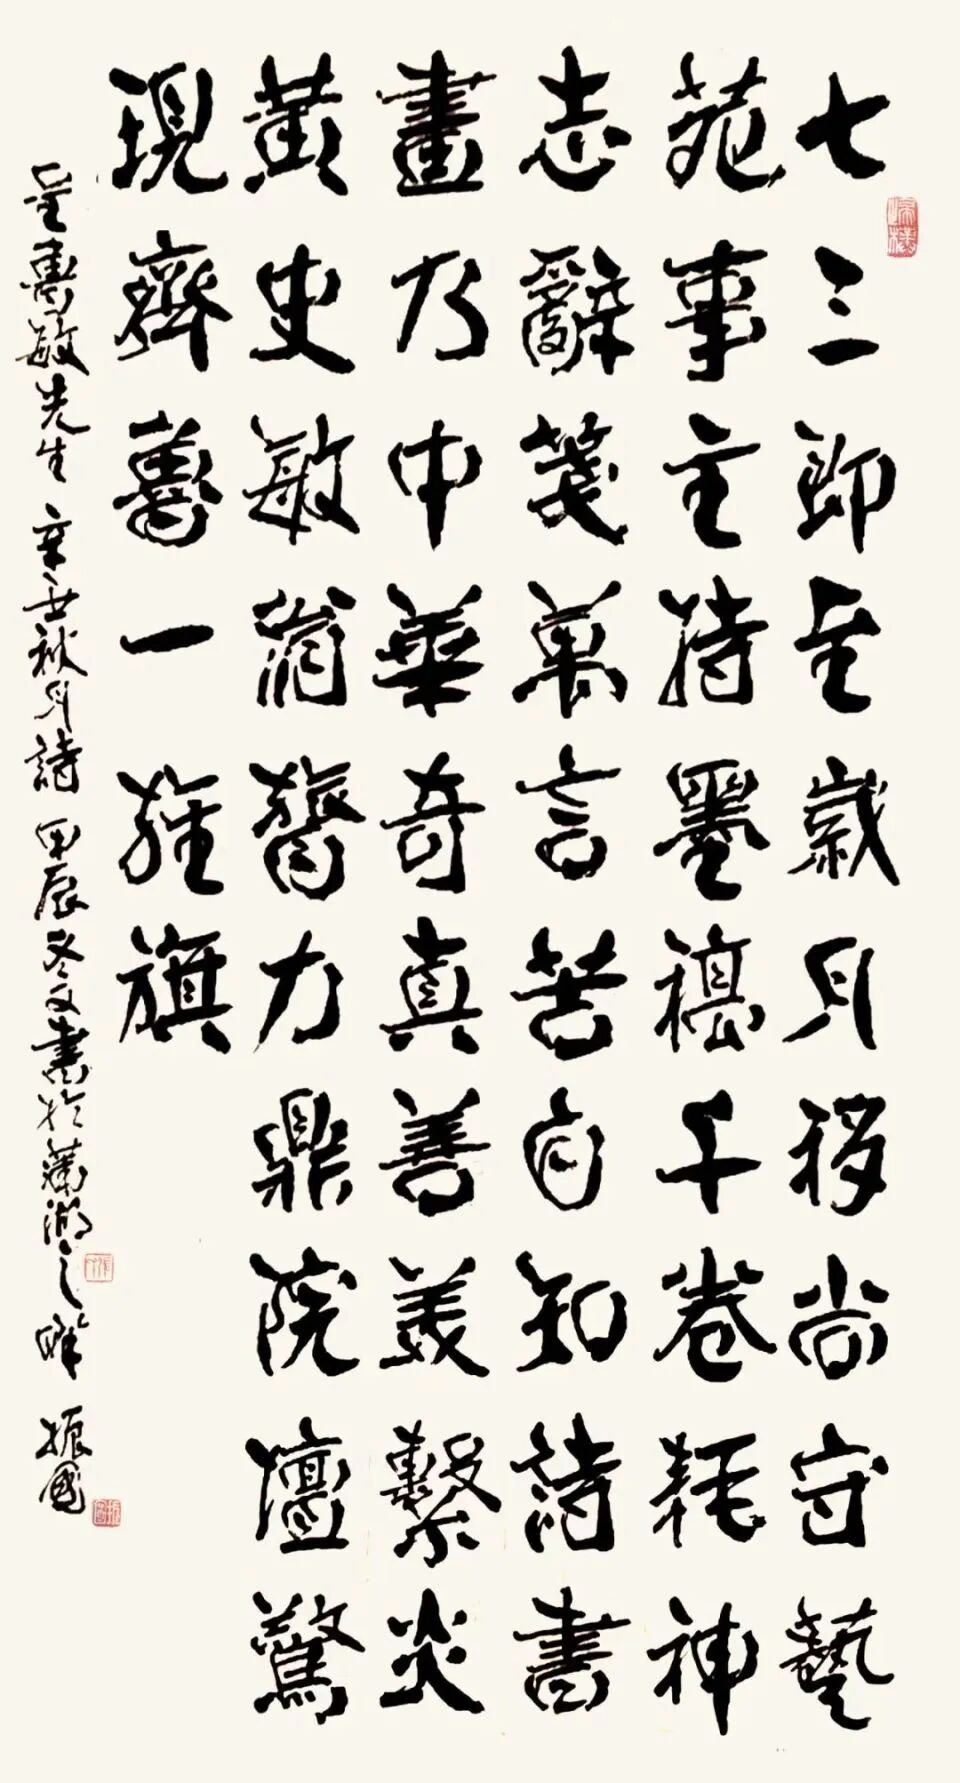 七三即至歲月移尚守藝
苑事主持墨千卷耗神
志辭箋萬言苦自知詩書
畫乃中華奇真善美繫炎
黃史敏翁膂力鼎院壇驚
現齊魯一旗
敏先生辛丑秋月詩甲辰冬書於蒲湖之畔振國